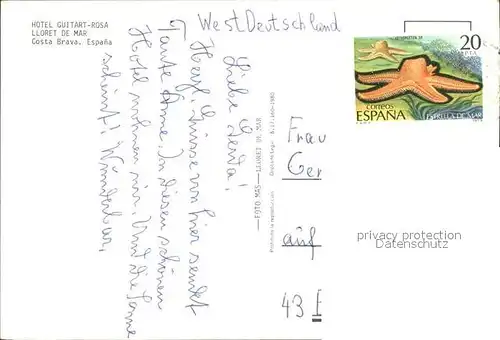 HOTEL GUITART-ROSA
LLORET DE MAR
Costa Brava. España
West Deutschland
Liebe Gerda!
Herzl. Grüsse von hier sendet
Tante Anne. In diesem schönen
Hotel wohnen wir. Und die Sonne
scheint! Wunderbar,
FOTO MAS — LLORET DE MAR
Prohibida la reproducción
Frau
Ger
auf
43
20
PTA
correos
ESPAÑA
ESTRELLA DE MAR
privacy protection
Datenschutz